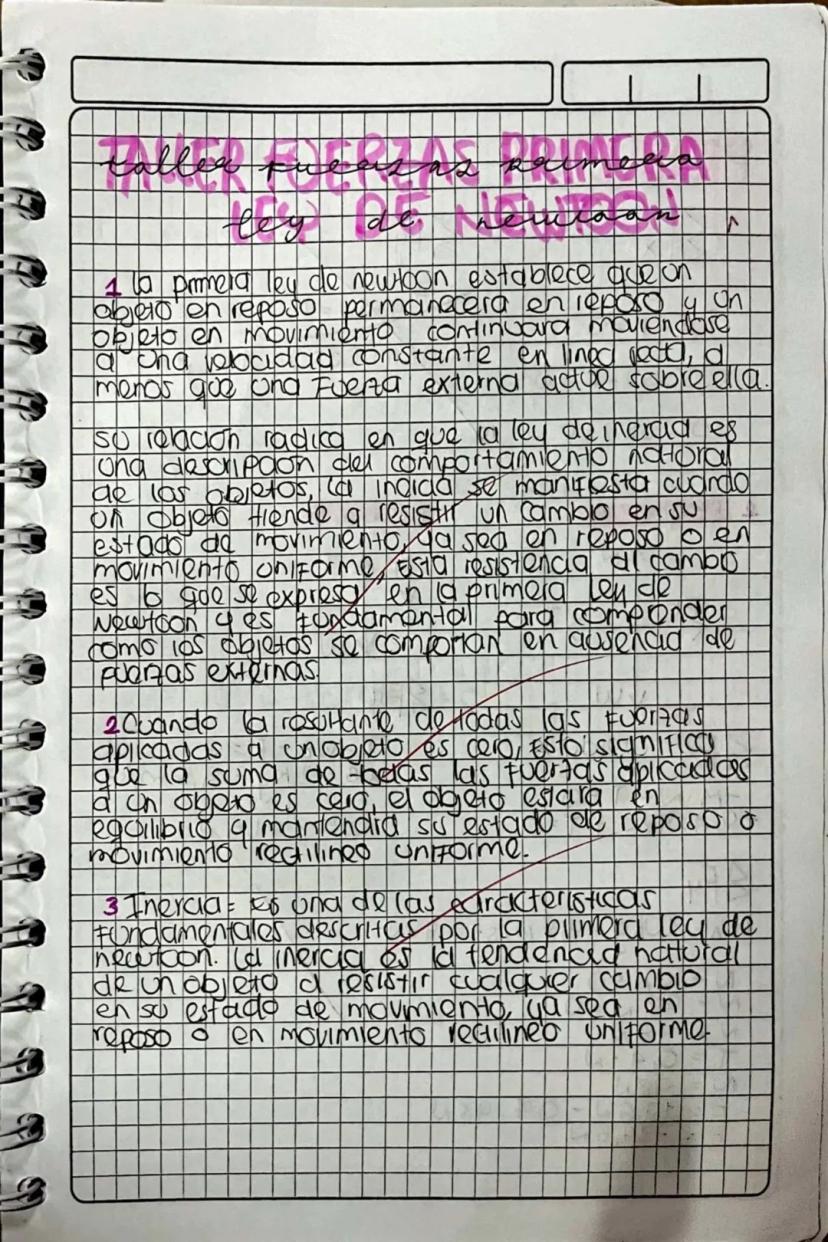 TALLER FUERZAS PRIMERA
LEY DE NEWTOON
1 la primera ley de newtoon establece que un
objeto en reposo permanecera en reposo y un
objeto en movimiento continuara moviendose
a una velocidad constante en linea recta, a
menos que una fuerza externa actue sobre ella.
su relacion radica en que la ley de inercia es
una descripcion del comportamiento natural
de los objetos, la inercia se manifiesta cuando
un objeto tiende a resistir un cambio en su
estado de movimiento, ya sea en reposo o en
movimiento uniforme, esta resistencia al cambio
es lo que se expresa en la primera ley de
Newtoon y es fundamental para comprender
como los objetos se comportan en ausencia de
fuerzas externas.
2 Cuando la resultante de todas las fuerzas
aplicadas a un objeto es cero, Esto significa
que la suma de todas las fuerzas aplicadas
a un objeto es cero, el objeto estara en
equilibrio y mantendra su estado de reposo o
movimiento rectilineo uniforme.
3 Inercia: Es una de las caracteristicas
fundamentales descritas por la primera ley de
newtoon. La inercia es la tendencia natural
de un objeto a resistir cualquier cambio
en su estado de movimiento, ya sea en
reposo o en movimiento rectilineo uniforme.